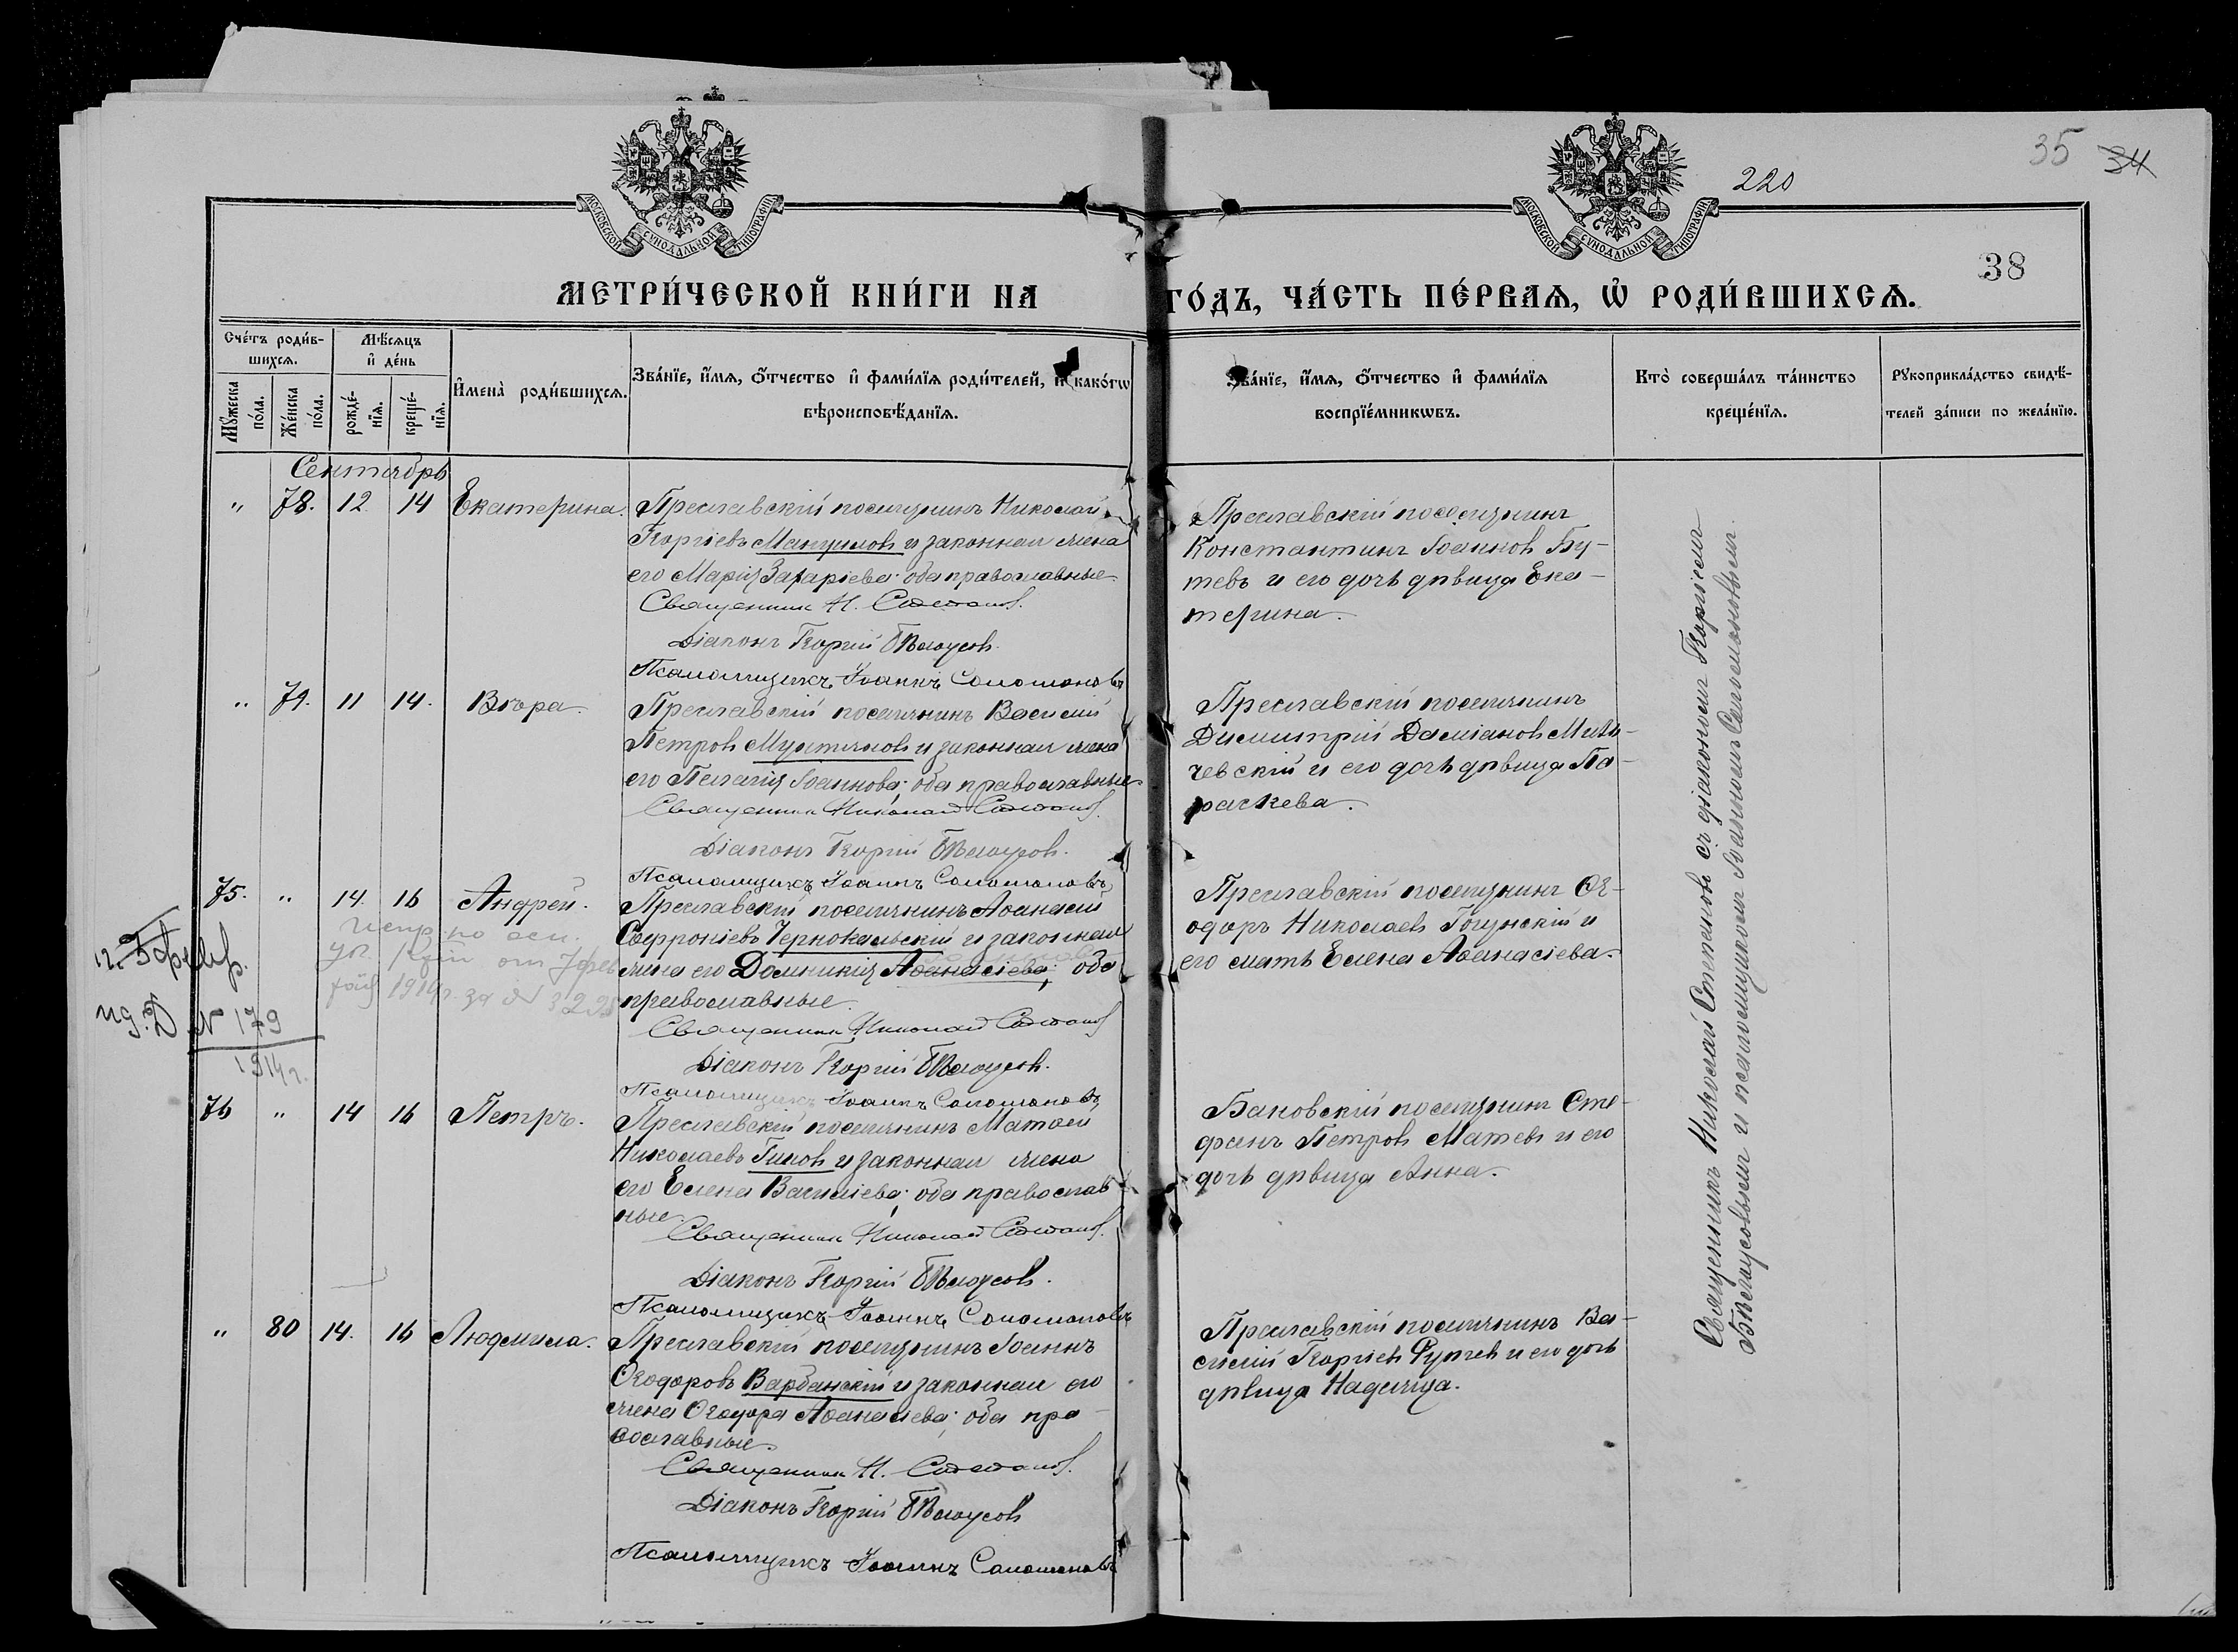 МОСКОВСКОЙ СУНОДАЛЬНОЙ ТИПОГРАФІИ
МОСКОВСКОЙ СУНОДАЛЬНОЙ ТИПОГРАФІИ
220
35 34
38
МЕТРИ́ЧЕСКОЙ КНИ́ГИ НА ГО́ДЪ, ЧА́СТЬ ПЕ́РВАѦ, Ѡ҆ РОДИ́ВШИХСѦ.
Сче́тъ роди́в-
шихсѧ.
Мꙋ́жеска по́ла.
Же́нска по́ла.
Мѣ́сѧцъ
и҆ де́нь
рожде́-
нїѧ.
креще́-
нїѧ.
И҆мена̀ роди́вшихсѧ.
Зва́нїе, и҆́мѧ, ѻ҆́тчество и҆ фами́лїѧ роди́телей, и҆ како́гѡ
вѣроисповѣ́данїѧ.
Зва́нїе, и҆́мѧ, ѻ҆́тчество и҆ фами́лїѧ
воспрїе́мникѡвъ.
Кто̀ соверша́лъ та́инство
креще́нїѧ.
Рꙋкоприкла́дство свидѣ́-
телей за́писи по жела́нїю.
Сентябрь
" 78. 12 14 Екатерина.
Преславскій поселянинъ Николай
Георгіевъ Манушловъ и законная жена
его Марія Захаріева; оба православные
Священникъ Н. Степановъ.
Діаконъ Георгій Бѣлоусовъ.
Псаломщикъ Іоаннъ Соломоновъ
Преславскій поселянинъ
Константинъ Іоанновъ Бу-
тевъ и его дочь дѣвица Ека-
терина.
" 79. 11 14. Вѣра.
Преславскій поселянинъ Василій
Петровъ Мунтяновъ и законная жена
его Пелагія Іоаннова; оба православные
Священникъ Николай Степановъ.
Діаконъ Георгій Бѣлоусовъ.
Псаломщикъ Іоаннъ Соломоновъ
Преславскій поселянинъ
Димитрій Даміановъ Миль-
чевскій и его дочь дѣвица Па-
раскева.
75. " 14. 16 Андрей.
Преславскій поселянинъ Аѳанасій
Софроніевъ Чернокольскій и законная
жена его Домникія Аѳанасіева; оба
православные.
Священникъ Николай Степановъ
Діаконъ Георгій Бѣлоусовъ.
Псаломщикъ Іоаннъ Соломоновъ
Преславскій поселянинъ Ѳе-
одоръ Николаевъ Гогунскій и
его мать Елена Аѳанасіева.
№ 179
1914 г.
76 " 14 16 Петръ.
Преславскій поселянинъ Матѳей
Николаевъ Гиновъ и законная жена
его Елена Василіева; оба православ
ные
Священникъ Николай Степановъ.
Діаконъ Георгій Бѣлоусовъ.
Псаломщикъ Іоаннъ Соломоновъ
Бановскій поселянинъ Сте-
фанъ Петровъ Матевъ и его
дочь дѣвица Анна.
" 80 14. 16 Людмила.
Преславскій поселянинъ Іоаннъ
Ѳеодоровъ Варбанскій и законная его
жена Ѳеодора Аѳанасіева; оба пра-
вославные.
Священникъ Н. Степановъ.
Діаконъ Георгій Бѣлоусовъ
Псаломщикъ Іоаннъ Соломоновъ
Преславскій поселянинъ Ва-
силій Георгіевъ Фунтевъ и его дочь
дѣвица Надежда.
Священникъ Николай Степановъ съ діакономъ Георгіемъ
Бѣлоусовымъ и псаломщикомъ Іоанномъ Соломоновымъ.